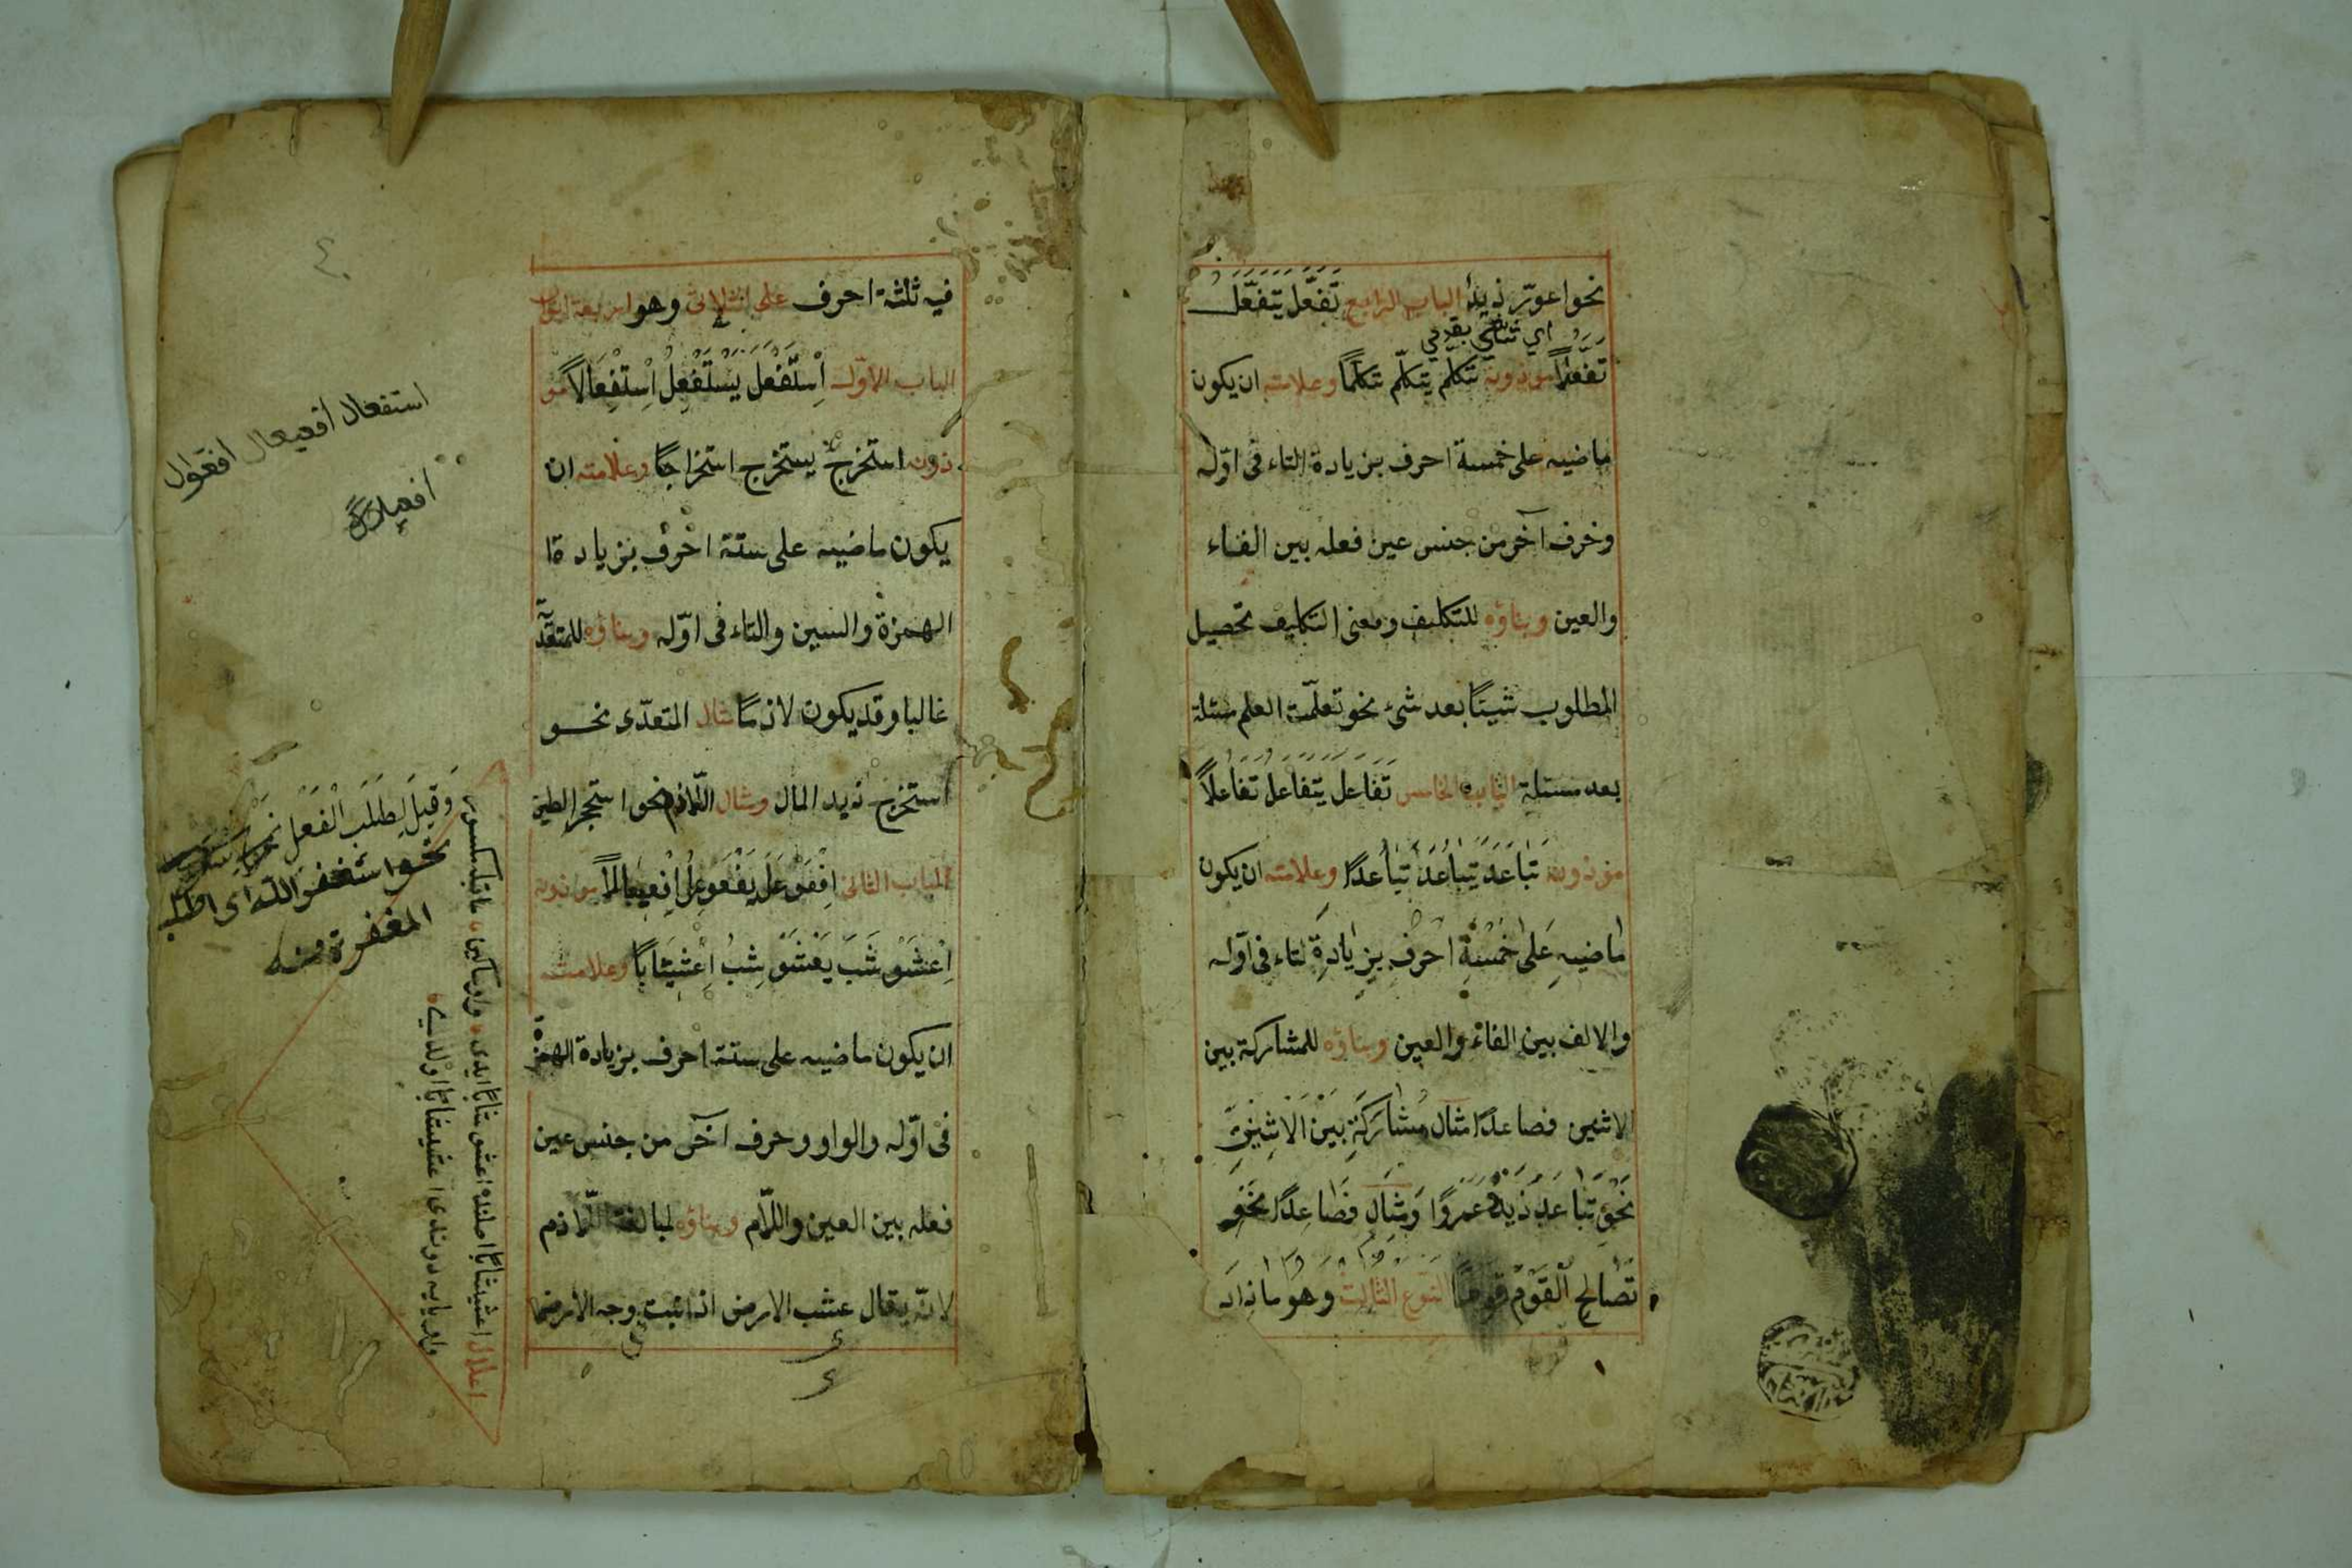 نحو اعورّ زيد الباب الرابع تَفَعَّلَ يَتَفَعَّلُ
تَفَعُّلاً موزونه تكلّم يتكلّم تكلّماً وعلامته ان يكون
ماضيه على خمسة احرف بزيادة التاء فى اوّله
وحرف آخر من جنس عين فعله بين الفاء
والعين وبناؤه للتكليف ومعنى التكليف تحصيل
المطلوب شيئًا بعد شئ نحو تعلّمت العلم مسئلة
بعد مسئلة الباب الخامس تَفَاعَلَ يَتَفَاعَلُ تَفَاعُلاً
موزونه تَبَاعَدَ يَتَبَاعَدُ تَبَاعُدًا وعلامته ان يكون
ماضيه على خمسة احرف بزيادة لتاء فى اوّله
والالف بين الفاء والعين وبناؤه للمشاركة بين
الاثنين فصاعدًا مثال مُشَارَكَةِ بَيْنَ الْاِثْنَيْنِ
نَحْوُ تَبَاعَدَ زَيْدٌ عَمْرًوا وَمِثَالِ فَصَاعِدًا نَحْوُ
تَصَالَح الْقَوْمُ النوع الثالث وهو ما زاد
فيه ثلثة احرف على الثلاثى وهو اربعة ابواب
الباب الاوّل اِسْتَفْعَلَ يَسْتَفْعِلُ اِسْتِفْعَالاً مو
زونه استخرج يستخرج استخراجًا وعلامته ان
يكون ماضيه على ستة احرف بزيادة ا
الهمزة والسين والتاء فى اوّله وبناؤه للمتعدّ
غالبا وقد يكون لازمًا مثال المتعدّى نحو
استخرج زيد المال ومثال اللّازم نحو استحجر الطين
الباب الثانى اِفْعَوْعَلَ يَفْعَوْعِلُ اِفْعِيعَالاً موزونه
اِعْشَوْشَبَ يَعْشَوْشِبُ اِعْشِيشَابًا وعلامته
ان يكون ماضيه على ستة احرف بزيادة الهمزة
فى اوّله والواو وحرف آخر من جنس عين
فعله بين العين واللّام وبناؤه لمبالغة اللّازم
لانّه يقال عشب الارض اذا نبت وجه الارض
استفعال افعيعال افعوّال
افعيلال
وَقِيلَ لِطَلَبِ الْفَعْلِ
نحو استغفر اللّه اى اطلب
المغفرة منه
اعلال اعشيشابًا اصلنده اعشوشابًا ايدى واو ساكن ماقبله مكسور
واو يايه دوندى اعشيشابًا اولدى